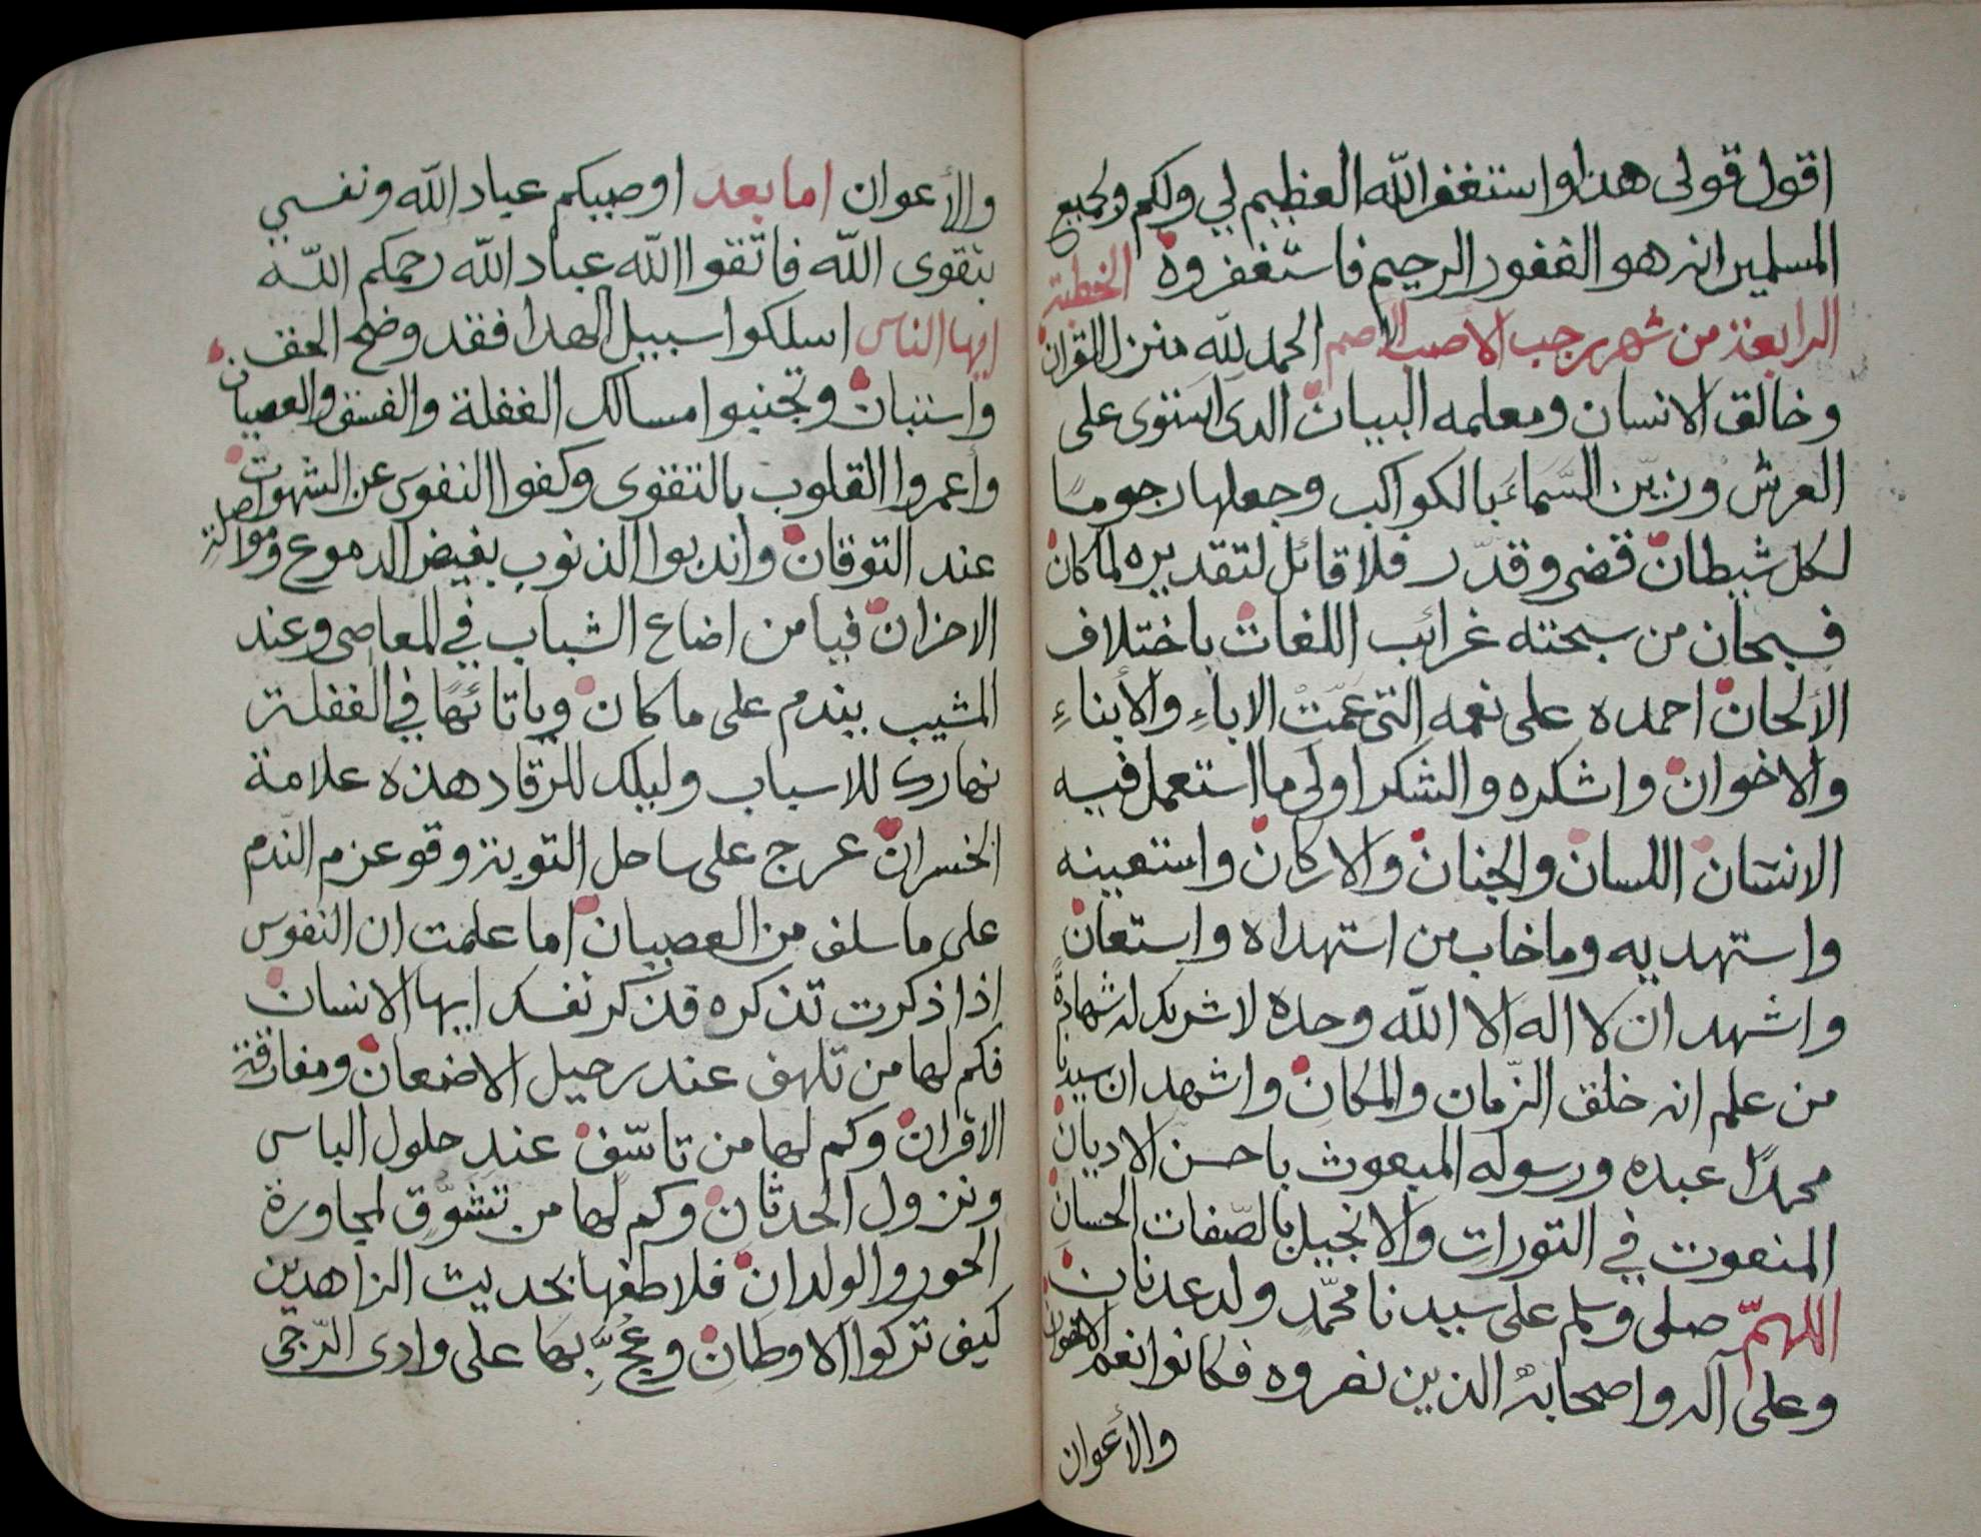 اقول قولى هذا واستغفر الله العظيم لي ولكم ولجميع
المسلمين انه هو الغفور الرحيم فاستغفروه الخطبة
الرابعة من شهر رجب الاصب الاصم الحمد لله منزل القران
وخالق الانسان ومعلمه البيان الذى استوى على
العرش وزين السماء بالكواكب وجعلها رجوما
لكل شيطان قضى وقدّر فلا قائل لتقديره لما كان
فسبحان من سبحته غرائب اللغات باختلاف
الألحان احمده على نعمه التى عمّت الاباءِ والأبناءِ
والاخوان واشكره والشكر اولى ما استعمل فيه
الانسان اللسان والجنان والاركان واستعينه
واستهديه وما خاب من استهداه واستعان
واشهد ان لا اله الا الله وحده لا شريك له شهادة
من علم انه خلق الزّمان والمكان واشهد ان سيدنا
محمدًا عبده ورسوله المبعوث باحسن الاديان
المنعوت في التورات والانجيل بالصّفات الحسان
اللهمّ صلى وسلم على سيدنا محمّد ولد عدنان
وعلى آله واصحابه الذين نصروه فكانوا نعم الاخوان
والأعوان
والأعوان اما بعد اوصيكم عباد الله ونفسي
بتقوى الله فاتّقوا الله عباد الله رحمكم اللّه
ايها الناس اسلكوا سبيل الهدا فقد وضح الحق
واستبان وتجنبوا مسالك الغفلة والفسق والعصيان
وأعمروا القلوب بالتقوى وكفوا النفوس عن الشهوت
عند التوقان واندبوا الذنوب بفيض الدموع ومواصلة
الاحزان فيا من اضاع الشباب في المعاصى وعند
المشيب يندم على ما كان ويا تائهًا في الغفلة
نهارك للاسباب وليلك للرقاد هذه علامة
الخسران عرج على ساحل التوبة وقو عزم النّدم
على ما سلف من العصيان اما علمت ان النفوس
اذا ذكرت تذكره فذكر نفسك ايها الانسان
فكم لها من تلهف عند رحيل الاضعان ومفارقة
الاقران وكم لها من تاسّف عند حلول الباس
ونزول الحدثان وكم لها من تشوّق لمجاورة
الحور والولدان فلاطفها بحديث الزاهدين
كيف تركوا الاوطان وعُجْ بها على وادى الدّجى